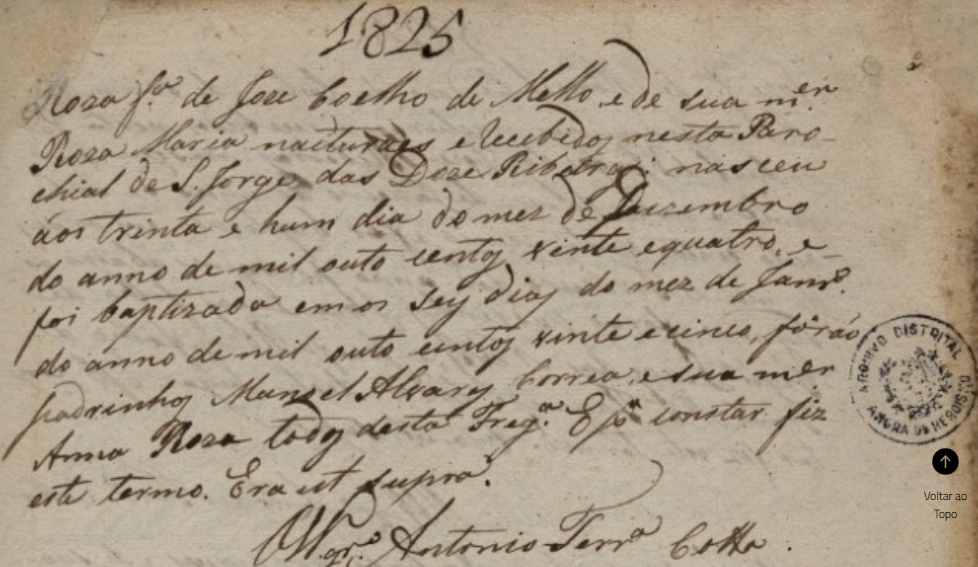 1825
Roza f.a de Joze Coelho de Mello e de sua m.er
Roza Maria naituraes e recebidos nesta Paro-
chial de S. Jorge das Doze Ribeiras: nasceu
áos trinta e hum dia do mez de Duzembro
do anno de mil outo centos vinte equatro, e
foi baptizada em os seys dias do mez de Janr.o
do anno de mil outo centos vinte ecinco, forão
padrinhos Manoel Alvares Correa, esua mer
Anna Roza todos desta Freg.a E p.a constar fiz
este termo. Era ut supra.
Antonio Ferr.a Cotta.
ARQUIVO DISTRITAL
ANGRA DO HEROISMO
Voltar ao
Topo